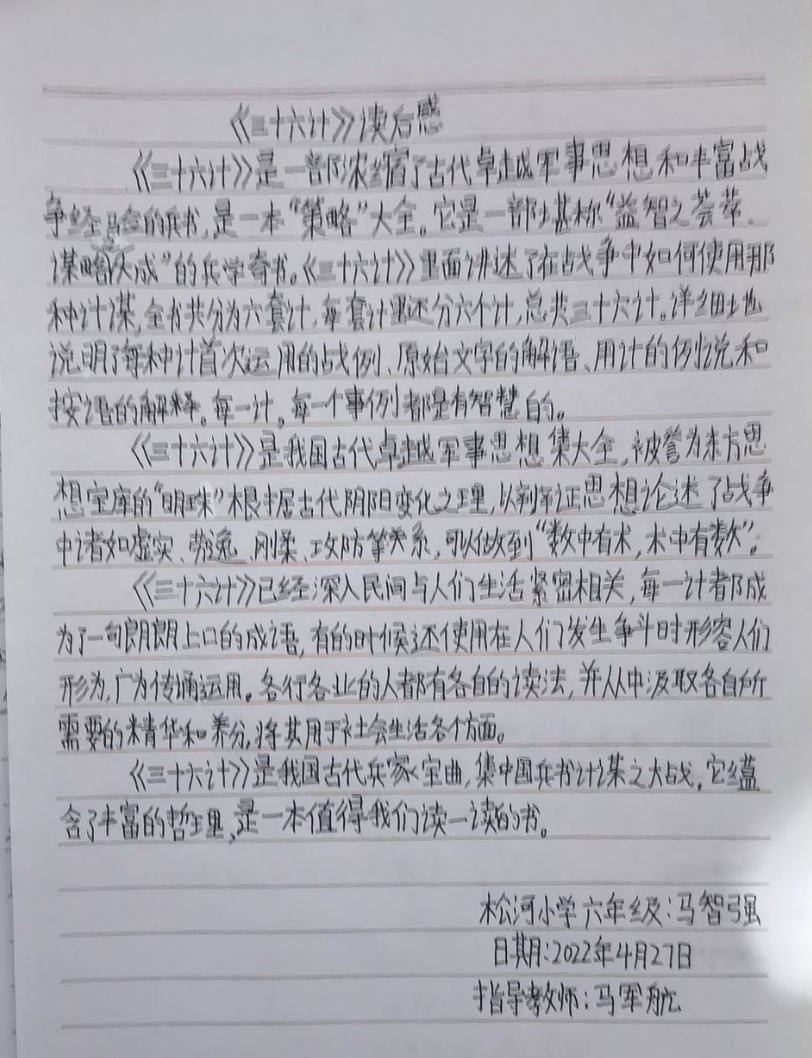 《三十六计》读后感
《三十六计》是一部浓缩了古代卓越军事思想和丰富战
争经验的兵书，是一本“策略”大全。它是一部堪称“益智之荟萃、
谋略大成”的兵学奇书。《三十六计》里面讲述了在战争中如何使用那
种计谋，全书共分为六套计，每套计里还分六个计，总共三十六计。详细地
说明了每种计首次运用的战例、原始文字的解语、用计的例说和
按语的解释。每一计。每一个事例都是有智慧的。
《三十六计》是我国古代卓越军事思想集大全，被誉为东方思
想宝库的“明珠”根据古代阴阳变化之理，以辩证思想论述了战争
中诸如虚实、劳逸、刚柔、攻防等关系，可以做到“数中有术，术中有数”。
《三十六计》已经深入民间与人们生活紧密相关，每一计都成
为了一句朗朗上口的成语，有的时候还使用在人们发生争斗时形容人们
形为，广为传诵运用。各行各业的人都有各自的读法，并从中汲取各自所
需要的精华和养分，将其用于社会生活各个方面。
《三十六计》是我国古代兵家宝曲，集中国兵书计谋之大战，它蕴
含了丰富的哲理，是一本值得我们读一读的书。
松河小学六年级：马智强
日期：2022年4月27日
指导教师：马军航